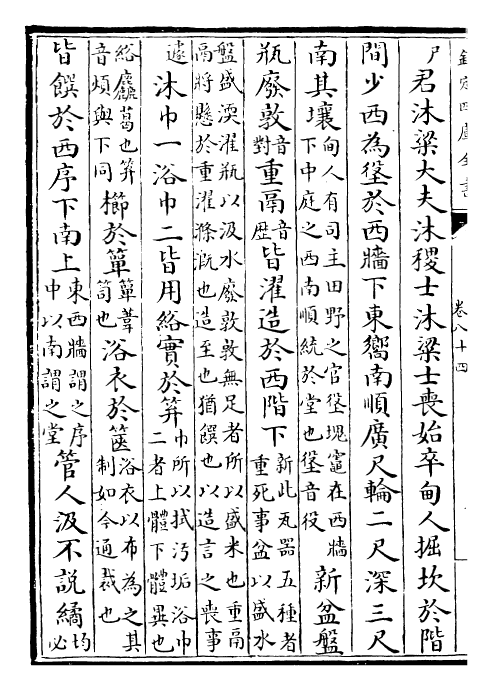 欽定四庫全書
卷八十四
尸君沐粱大夫沐稷士沐粱士喪始卒甸人掘坎於階
間少西為垼於西牆下東嚮南順廣尺輪二尺深三尺
南其壤
甸人有司主田野之官垼塊竈在西牆
下中庭之西南順統於堂也垼音役
新盆盤
瓶廢敦
音
對
重鬲
音
歷
皆濯造於西階下
新此瓦器五種者
重死事盆以盛水
盤盛渜濯瓶以汲水廢敦敦無足者所以盛米也重鬲
鬲將懸於重濯滌溉也造至也猶饌也以造言之喪事
遽
沐巾一浴巾二皆用綌實於笲
巾所以拭污垢浴巾
二者上體下體異也
綌麤葛也笲
音煩與下同
櫛於簞
簞葦
笥也
浴衣於篋
浴衣以布為之其
制如今通裁也
皆饌於西序下南上
東西牆謂之序
中以南謂之堂
管人汲不說繘
均
必